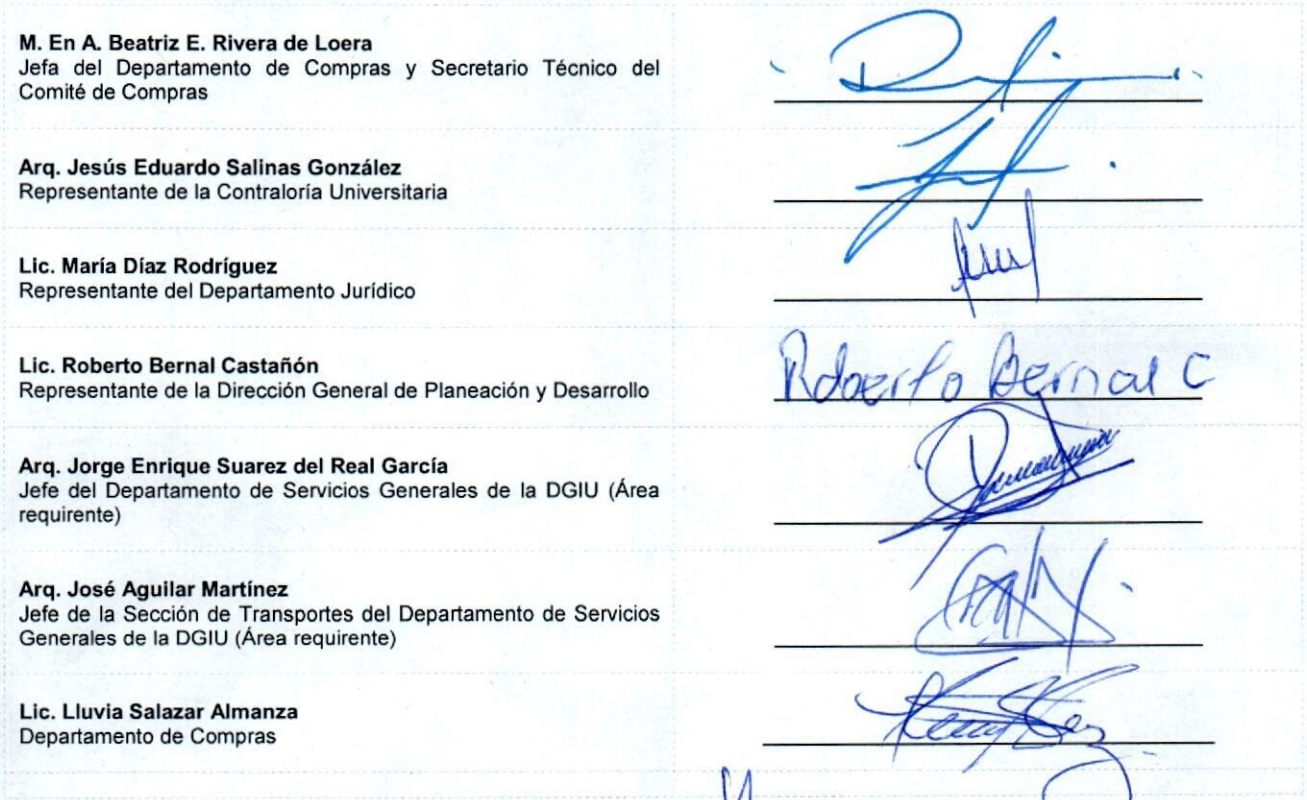 M. En A. Beatriz E. Rivera de Loera
Jefa del Departamento de Compras y Secretario Técnico del
Comité de Compras
Arq. Jesús Eduardo Salinas González
Representante de la Contraloría Universitaria
Lic. María Díaz Rodríguez
Representante del Departamento Jurídico
Lic. Roberto Bernal Castañón
Representante de la Dirección General de Planeación y Desarrollo
Roberto Bernal C
Arq. Jorge Enrique Suarez del Real García
Jefe del Departamento de Servicios Generales de la DGIU (Área
requirente)
Arq. José Aguilar Martínez
Jefe de la Sección de Transportes del Departamento de Servicios
Generales de la DGIU (Área requirente)
Lic. Lluvia Salazar Almanza
Departamento de Compras